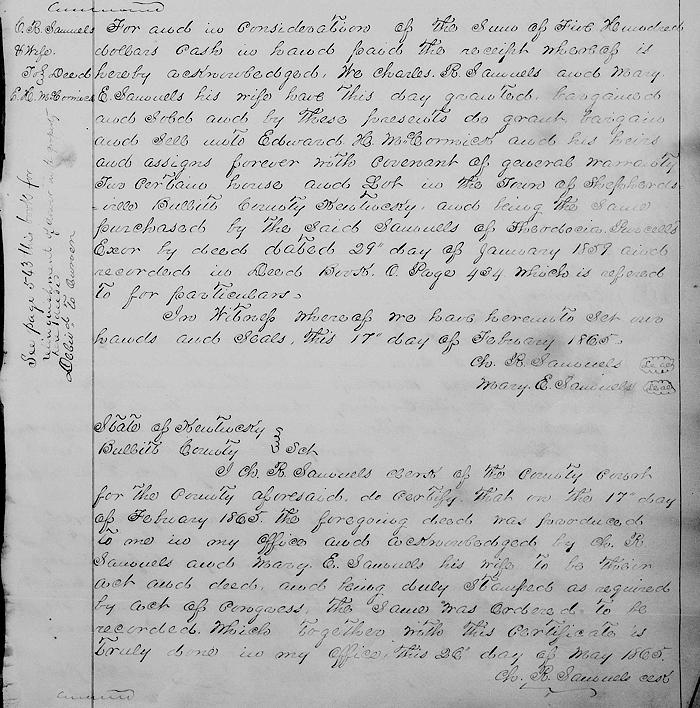 C. R. Samuels
& Wife
To } Deed
E. H. McCormick
For and in consideration of the Sum of Five Hundred
dollars Cash in hand paid the receipt whereof is
hereby acknowledged, We Charles. R. Samuels and Mary.
E. Samuels his wife have this day granted, bargained
and Sold and by these presents do grant, bargain
and Sell unto Edward H. McCormick and his heirs
and assigns forever with Covenant of general warranty
Two certain house and Lot in the Town of Shepherds-
-ville Bullitt County Kentucky, and being the Same
purchased by the Said Samuels of Theodocia Purcells
Exor by deed dated 29" day of January 1859 and
recorded in Deed Book. O. Page 424. Which is refered
to for particulars.
In Witness Whereof we have hereunto Set our
hands and Seals, this 17" day of February 1865.
Ch. R. Samuels Seal
Mary. E. Samuels Seal
See page 563 this book for
of and in
Delivd to
State of Kentucky
Bullitt County } Sct
I Ch. R. Samuels clerk of the County Court
for the County aforesaid, do Certify. That on the 17" day
of February 1865. the foregoing deed was produced
to me in my office and acknowledged by Ch. R.
Samuels and Mary. E. Samuels his wife to be their
act and deed, and being duly Stamped as required
by act of Congress, the Same was ordered to be
recorded. Which together with this Certificate is
truly done in my Office, this day of May 1865.
Ch. R. Samuels